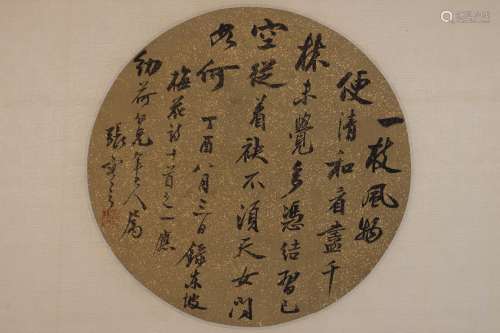 一枝風物
便清和看盡千
林未覺多憑結習已
空從着袂不須天女問
如何 丁酉八月三日錄東坡
梅花詩十首之一應
幼荷仁兄年大人屬
張